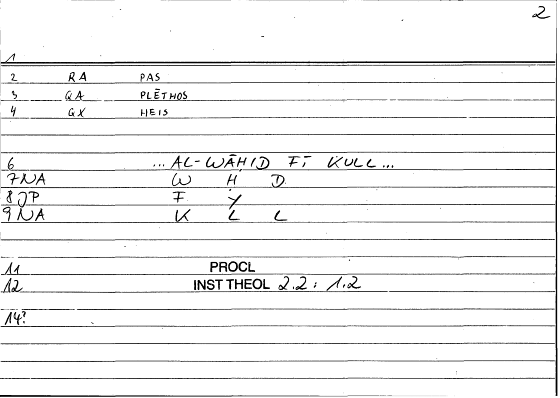 2
1
2 RA PAS
3 QA PLĒTHOS
4 GX HEIS
6 ... AL-WĀḤID FĪ KULL ...
7 NA W Ḥ D
8 JP F Y
9 NA K L L
11 PROCL
12 INST THEOL 2.2 : 1.2
14?